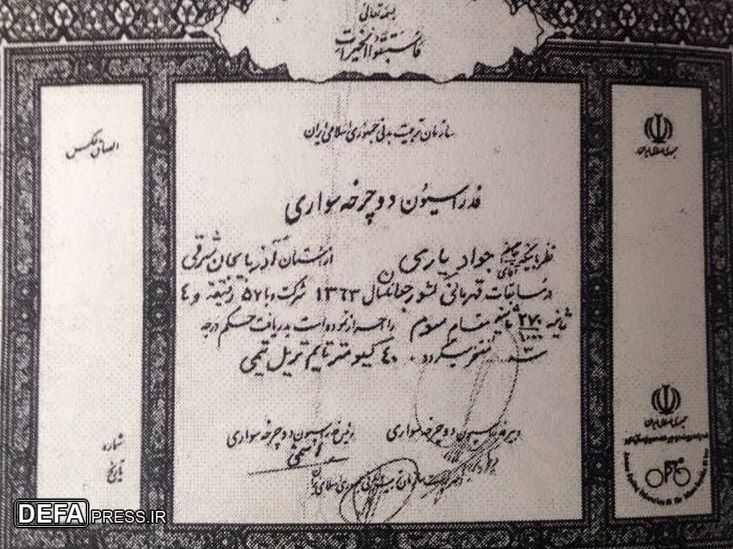 بسمه تعالی
فاستبقوا الخیرات
سازمان تربیت بدنی جمهوری اسلامی ایران
فدراسیون دوچرخه سواری
الصاق عکس
جمهوری اسلامی ایران
نظر باینکه آقای جواد یاری از استان آذربایجان شرقی
در مسابقات قهرمانی کشور جوانان سال ۱۳۶۳ شرکت و با ۵۷ دقیقه و ۴
ثانیه ۲۷۰/۱۰۰۰ مقام سوم را احراز نموده است بدریافت حکم درجه
مفتخر میگردد. ۴۰ کیلومتر تایم تریل تیمی
دبیر فدراسیون دوچرخه سواری
رئیس فدراسیون دوچرخه سواری
سازمان تربیت بدنی جمهوری اسلامی ایران
شماره
تاریخ
جمهوری اسلامی ایران
DEFAPRESS.IR